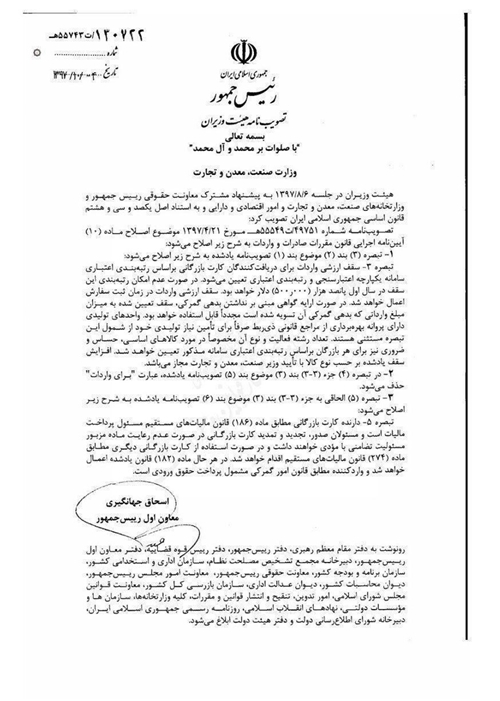 ۱۲۰۷۲۲/ت۵۵۷۴۳هـ
شماره
تاریخ
جمهوری اسلامی ایران
رئیس جمهور
تصویب نامه هیئت وزیران
بسمه تعالی
"با صلوات بر محمد و آل محمد"
وزارت صنعت، معدن و تجارت
هیئت وزیران در جلسه ۱۳۹۷/۸/۶ به پیشنهاد مشترک معاونت حقوقی رییس جمهور و
وزارتخانه‌های صنعت، معدن و تجارت و امور اقتصادی و دارایی و به استناد اصل یکصد و سی و هشتم
قانون اساسی جمهوری اسلامی ایران تصویب کرد:
تصویب‌نامه شماره ۴۹۷۵۱/ت۵۵۵۴۹هـ مورخ ۱۳۹۷/۴/۲۱ موضوع اصلاح ماده (۱۰)
آیین‌نامه اجرایی قانون مقررات صادرات و واردات به شرح زیر اصلاح می‌شود:
۱- تبصره (۳) بند (۲) موضوع بند (۱) تصویب‌نامه یادشده به شرح زیر اصلاح می‌شود:
تبصره ۳- سقف ارزشی واردات برای دریافت‌کنندگان کارت بازرگانی براساس رتبه‌بندی اعتباری
سامانه یکپارچه اعتبارسنجی و رتبه‌بندی اعتباری تعیین می‌شود. در صورت عدم امکان رتبه‌بندی این
سقف در سال اول پانصد هزار (۵۰۰٫۰۰۰) دلار خواهد بود. سقف ارزشی واردات در زمان ثبت سفارش
اعمال خواهد شد. در صورت ارایه گواهی مبنی بر نداشتن بدهی گمرکی، سقف تعیین شده به میزان
مبلغ وارداتی که بدهی گمرکی آن تسویه شده است مجدداً قابل استفاده خواهد بود. واحدهای تولیدی
دارای پروانه بهره‌برداری از مراجع قانونی ذی‌ربط صرفاً برای تأمین نیاز تولیدی خود از شمول این
تبصره مستثنی هستند. تعداد رشته فعالیت و نوع آن مخصوصاً در مورد کالاهای اساسی، حساس و
ضروری نیز برای هر بازرگان براساس رتبه‌بندی اعتباری سامانه مذکور تعیین خواهد شد. افزایش
سقف یادشده بر حسب نوع کالا با تأیید وزیر صنعت، معدن و تجارت مجاز می‌باشد.
۲- در تبصره (۴) جزء (۳-۳) بند (۳) موضوع بند (۵) تصویب‌نامه یادشده، عبارت "برای واردات"
حذف می‌شود.
۳- تبصره (۵) الحاقی به جزء (۳-۳) بند (۳) موضوع بند (۶) تصویب‌نامه یادشده به شرح زیر
اصلاح می‌شود:
تبصره ۵- دارنده کارت بازرگانی مطابق ماده (۱۸۶) قانون مالیات‌های مستقیم مسئول پرداخت
مالیات است و مسئولان صدور، تجدید و تمدید کارت بازرگانی در صورت عدم رعایت ماده مزبور
مسئولیت تضامنی با مؤدی خواهند داشت و در صورت استفاده از کارت بازرگانی دیگری مطابق
ماده (۲۷۴) قانون مالیات‌های مستقیم اقدام خواهد شد. در هر حال ماده (۱۸۲) قانون یادشده اعمال
خواهد شد و واردکننده مطابق قانون امور گمرکی مشمول پرداخت حقوق ورودی است.
اسحاق جهانگیری
معاون اول رییس‌جمهور
رونوشت به دفتر مقام معظم رهبری، دفتر رییس‌جمهور، دفتر رییس قوه قضاییه، دفتر معاون اول
رییس‌جمهور، دبیرخانه مجمع تشخیص مصلحت نظام، سازمان اداری و استخدامی کشور،
سازمان برنامه و بودجه کشور، معاونت حقوقی رییس‌جمهور، معاونت امور مجلس رییس‌جمهور،
دیوان محاسبات کشور، دیوان عدالت اداری، سازمان بازرسی کل کشور، معاونت قوانین
مجلس شورای اسلامی، امور تدوین، تنقیح و انتشار قوانین و مقررات، کلیه وزارتخانه‌ها، سازمان ها و
مؤسسات دولتی، نهادهای انقلاب اسلامی، روزنامه رسمی جمهوری اسلامی ایران،
دبیرخانه شورای اطلاع‌رسانی دولت و دفتر هیئت دولت ابلاغ می‌شود.